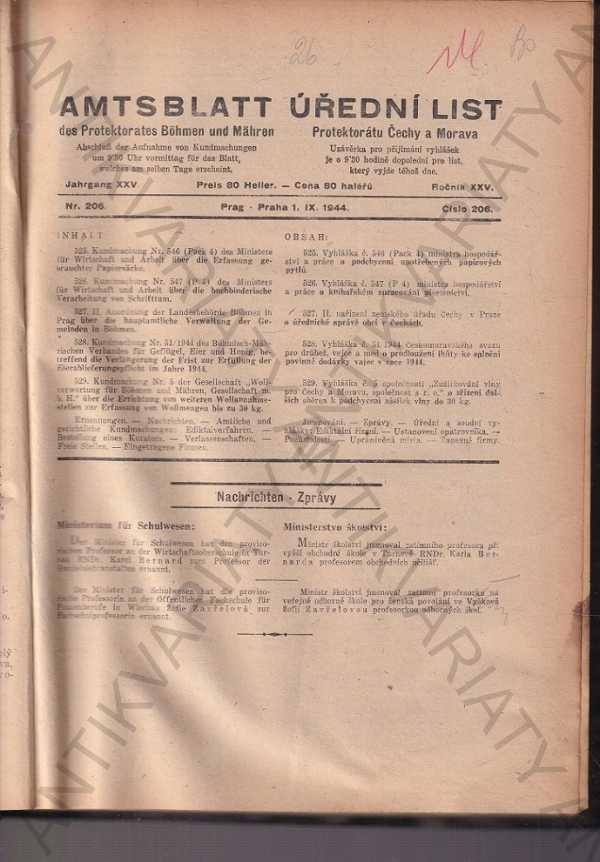 26
AMTSBLATT
des Protektorates Böhmen und Mähren
Abschluß der Aufnahme von Kundmachungen
um 9'30 Uhr vormittag für das Blatt,
welches am selben Tage erscheint.
ÚŘEDNÍ LIST
Protektorátu Čechy a Morava
Uzávěrka pro přijímání vyhlášek
je o 9'30 hodině dopolední pro list,
který vyjde téhož dne.
Jahrgang XXV. Preis 80 Heller. — Cena 80 haléřů Ročník XXV.
Nr. 206. Prag - Praha 1. IX. 1944. Číslo 206.
INHALT
525. Kundmachung Nr. 546 (Pack 4) des Ministers
für Wirtschaft und Arbeit über die Erfassung ge-
brauchter Papiersäcke.
526. Kundmachung Nr. 547 (P 4) des Ministers
für Wirtschaft und Arbeit über die buchbinderische
Verarbeitung von Schrifttum.
527. II. Anordnung der Landesbehörde Böhmen in
Prag über die hauptamtliche Verwaltung der Ge-
meinden in Böhmen.
528. Kundmachung Nr. 51/1944 des Böhmisch-Mäh-
rischen Verbandes für Geflügel, Eier und Honig, be-
treffend die Verlängerung der Frist zur Erfüllung der
Eierablieferungspflicht im Jahre 1944.
529. Kundmachung Nr. 5 der Gesellschaft „Woll-
verwertung für Böhmen und Mähren, Gesellschaft m.
b. H." über die Errichtung von weiteren Wollannahme-
stellen zur Erfassung von Wollmengen bis zu 30 kg.
Ernennungen. — Nachrichten. — Amtliche und
gerichtliche Kundmachungen: Ediktalverfahren. —
Bestellung eines Kurators. — Verlassenschaften. —
Freie Stellen. — Eingetragene Firmen.
OBSAH:
525. Vyhláška č. 546 (Pack 4) ministra hospodář-
ství a práce o podchycení upotřebených papírových
pytlů.
526. Vyhláška č. 547 (P 4) ministra hospodářství
a práce o knihařském zpracování písemnictví.
527. II. nařízení zemského úřadu Čechy v Praze
o úřednické správě obcí v Čechách.
528. Vyhláška č. 51/1944 Českomoravského svazu
pro drůbež, vejce a med o prodloužení lhůty ke splnění
povinné dodávky vajec v roce 1944.
529. Vyhláška č. 5 společnosti „Zužitkování vlny
pro Čechy a Moravu, společnost s r. o." o zřízení dal-
ších sběren k podchycení zásilek vlny do 30 kg.
Jmenování. — Zprávy. — Úřední a soudní vy-
hlášky: Ediktální řízení. — Ustanovení opatrovníka. —
Pozůstalosti. — Uprázdněná místa. — Zapsané firmy.
Nachrichten - Zprávy
Ministerium für Schulwesen:
Der Minister für Schulwesen hat den proviso-
rischen Professor an der Wirtschaftsoberschule in Tur-
nau RNDr. Karel Bernard zum Professor der
ernannt.
Der Minister für Schulwesen hat die proviso-
rische Professorin an der öffentlichen Fachschule für
Frauenberufe in Wischau Žofie Zavřelová zur
Fachschulprofessorin ernannt.
Ministerstvo školství:
Ministr školství jmenoval zatímního profesora při
vyšší obchodní škole v Turnově RNDr. Karla Ber-
narda profesorem obchodních učilišť.
Ministr školství jmenoval zatímní profesorku na
veřejné odborné škole pro ženská povolání ve Vyškově
Žofii Zavřelovou profesorkou odborných škol.
ANTIKVARIATY ANTIKVARIATY